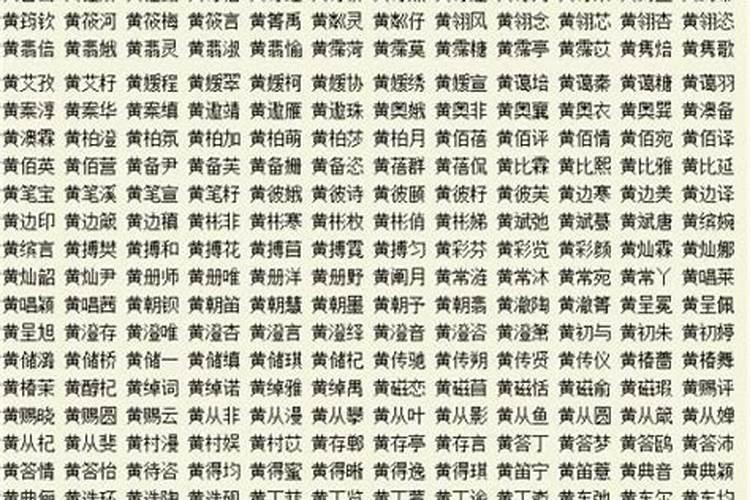 黄筠钦 黄筱河 黄筱梅 黄筱言 黄箐禹 黄粼灵 黄粼仔 黄翎风 黄翎念 黄翎芯 黄翎杏 黄翎恣
黄翡倍 黄翡娥 黄翡灵 黄翡淑 黄翡愉 黄霈菏 黄霈莫 黄霈榶 黄霈亭 黄霈苡 黄隽焙 黄隽歌
黄艾孜 黄艾籽 黄媛程 黄媛翠 黄媛柯 黄媛协 黄媛绣 黄媛宣 黄蔼培 黄蔼秦 黄蔼榶 黄蔼羽
黄案淳 黄案华 黄案缜 黄遨靖 黄遨雁 黄遨珠 黄奥娥 黄奥非 黄奥襄 黄奥衣 黄奥巽 黄澳备
黄澳霖 黄柏澄 黄柏氛 黄柏加 黄柏萌 黄柏莎 黄柏月 黄佰蓓 黄佰评 黄佰情 黄佰宛 黄佰译
黄佰英 黄佰营 黄备尹 黄备芙 黄备姗 黄备恣 黄蓓群 黄蓓侃 黄比霖 黄比熙 黄比雅 黄比延
黄笔宝 黄笔溪 黄笔宣 黄笔籽 黄彼娥 黄彼诗 黄彼颐 黄彼籽 黄彼芙 黄边寒 黄边美 黄边译
黄边印 黄边箴 黄边稹 黄彬非 黄彬寒 黄彬枚 黄彬俏 黄彬娣 黄斌弛 黄斌蔓 黄斌唐 黄缤婉
黄缤言 黄搏樊 黄搏和 黄搏花 黄搏苜 黄搏霓 黄搏匀 黄彩芬 黄彩览 黄彩颜 黄灿霖 黄灿娜
黄灿韶 黄灿尹 黄册师 黄册唯 黄册洋 黄册野 黄阐月 黄常涟 黄常沐 黄常宛 黄常丫 黄唱莱
黄唱颖 黄唱茜 黄朝钡 黄朝笛 黄朝慧 黄朝墨 黄朝予 黄朝翡 黄澈陶 黄澈箐 黄呈冕 黄呈佩
黄呈旭 黄澄存 黄澄唯 黄澄杏 黄澄言 黄澄绎 黄澄音 黄澄咨 黄澄箫 黄初与 黄初朱 黄初婷
黄储潞 黄储桥 黄储一 黄储缜 黄储琪 黄储杞 黄传驰 黄传朔 黄传贤 黄传仪 黄椿蔷 黄椿舞
黄椿茉 黄醇杞 黄绰词 黄绰诺 黄绰雅 黄绰禹 黄磁恋 黄磁苜 黄磁恬 黄磁俞 黄磁瑕 黄赐评
黄赐晓 黄赐圆 黄赐云 黄从非 黄从漫 黄从攀 黄从叶 黄从影 黄从鱼 黄从圆 黄从箴 黄从婵
黄从杞 黄从斐 黄村漫 黄村娱 黄村苡 黄存郸 黄存亭 黄存言 黄答丁 黄答梦 黄答鸥 黄答沛
黄答情 黄答怡 黄待咨 黄得均 黄得蜜 黄得晰 黄得逸 黄得琪 黄笛宁 黄笛薏 黄典音 黄典颖